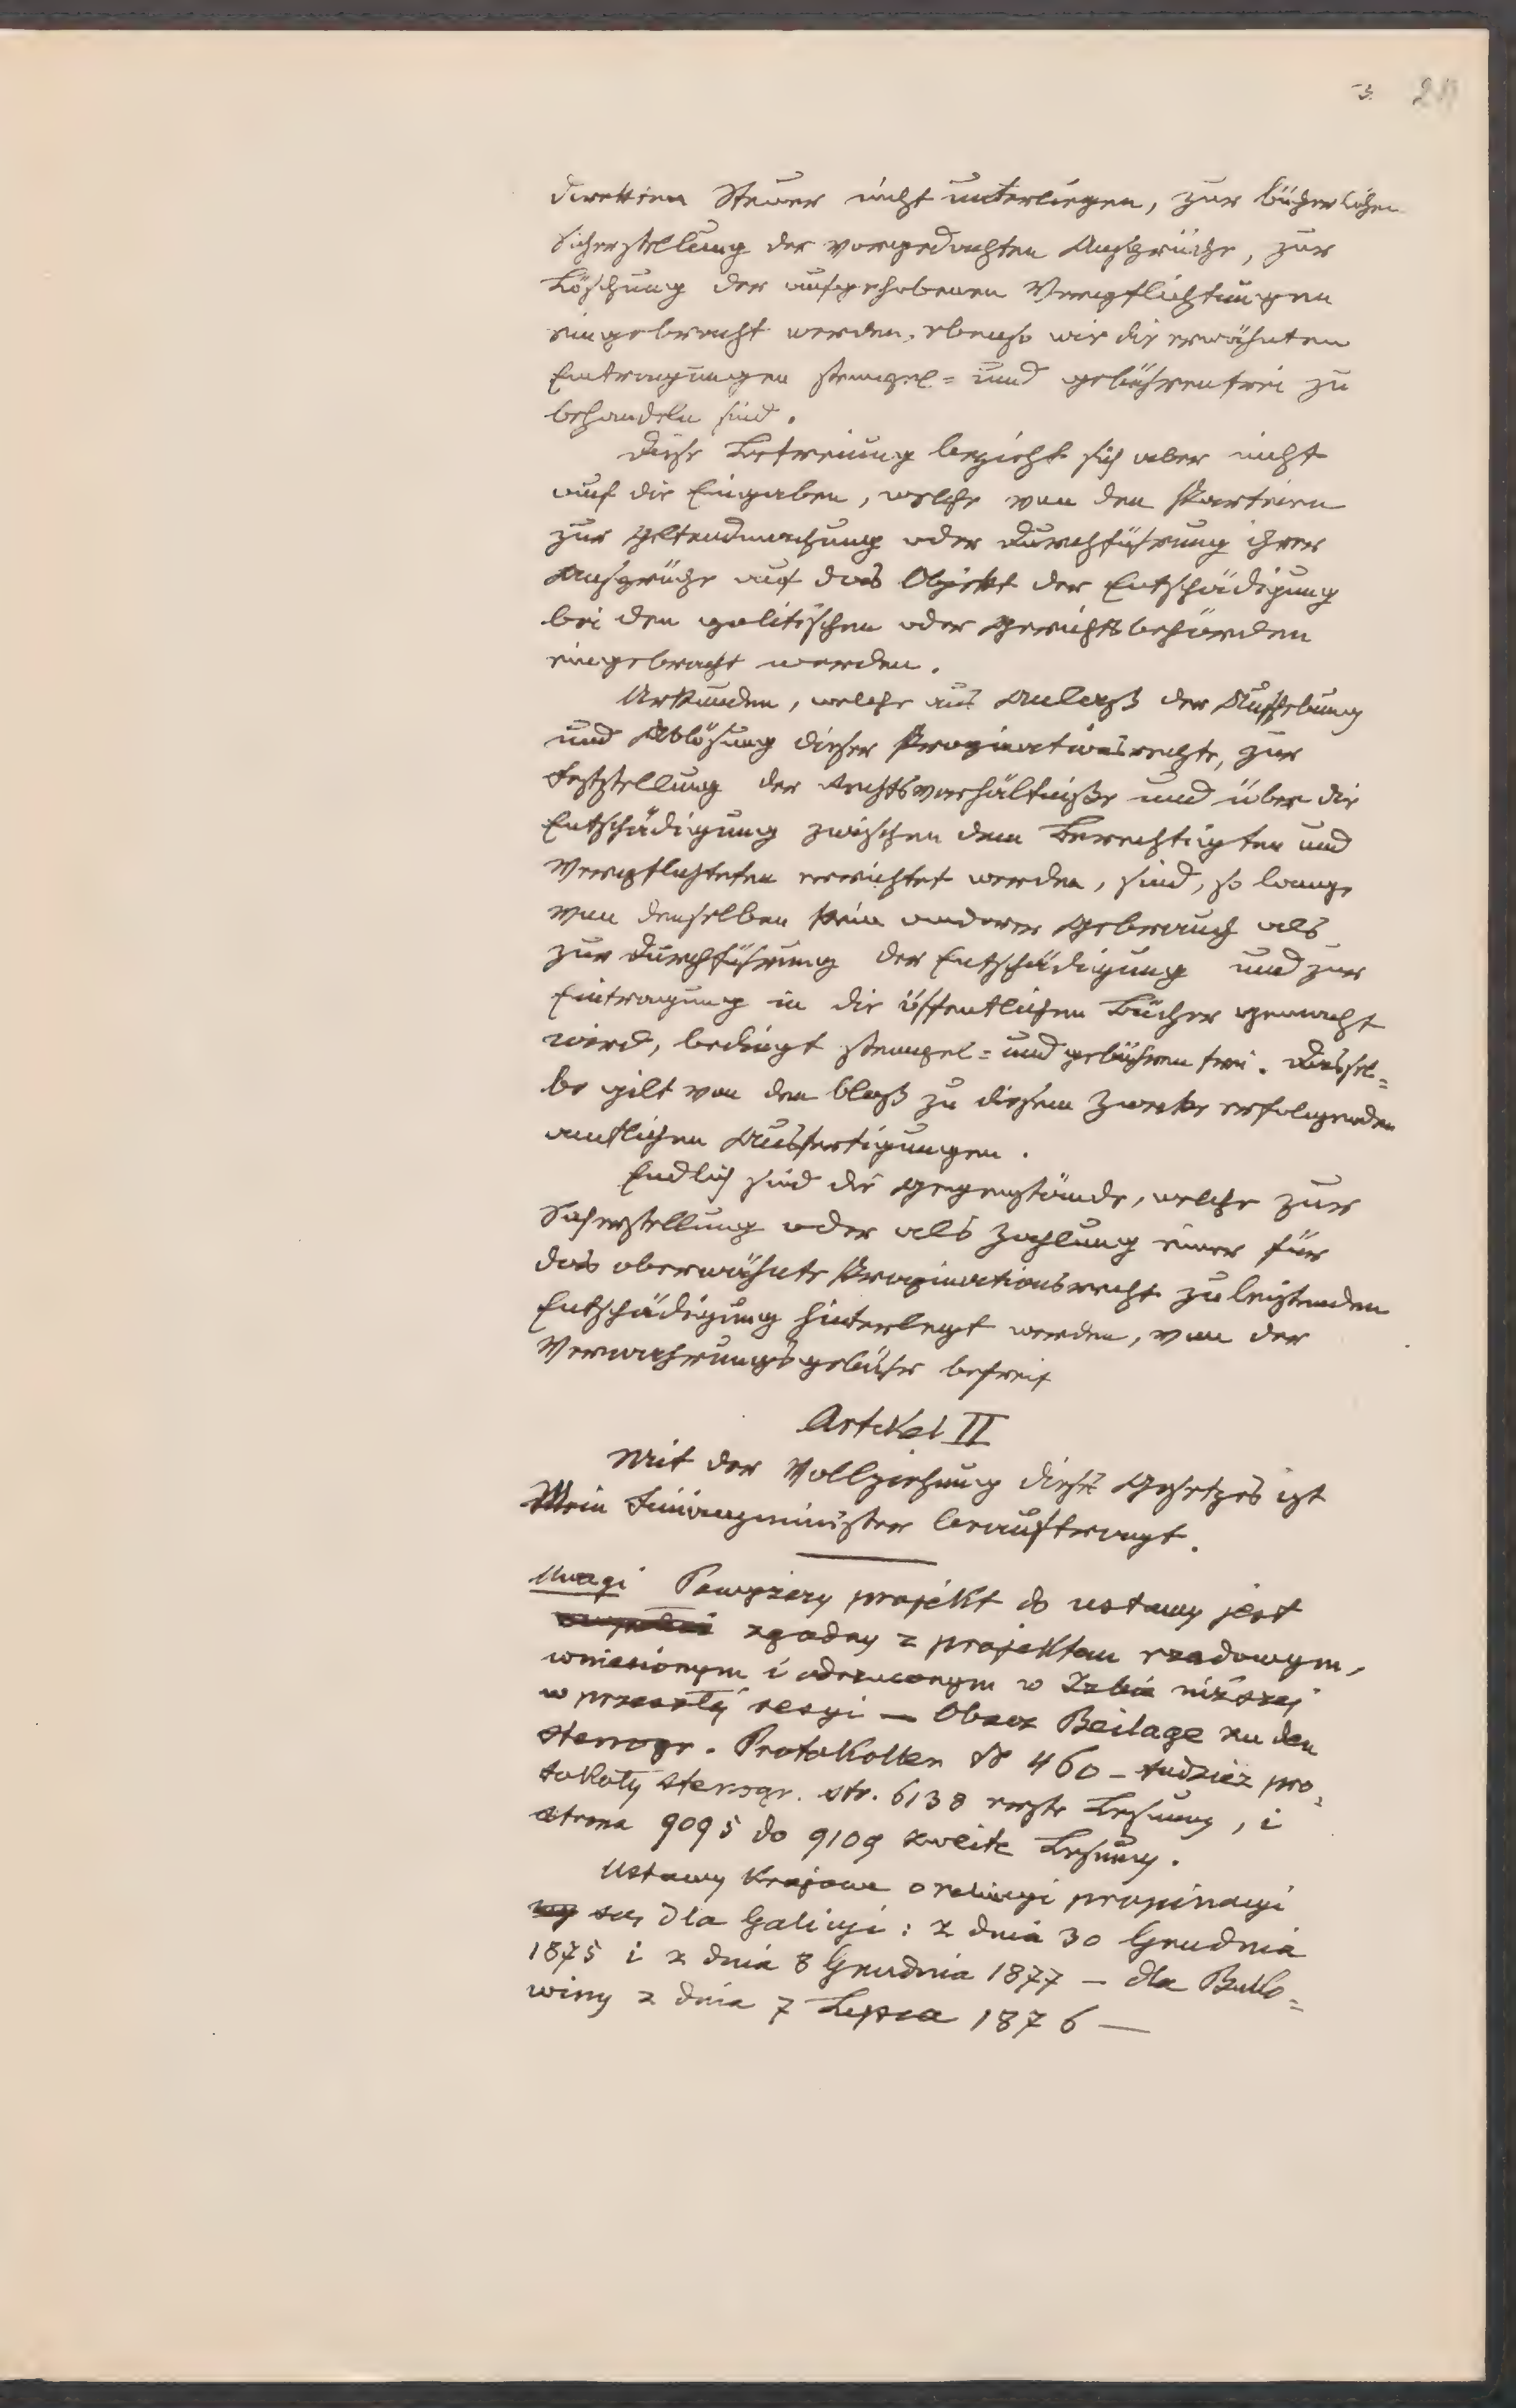 3.
direkten Steuer nicht unterliegen, zur bücherlichen
Sicherstellung der vorgedachten Ansprüche, zur
Löschung der aufgehobenen Verpflichtungen
eingebracht werden, ebenso wie die erwähnten
Eintragungen stempel= und gebührenfrei zu
behandeln sind.
Diese Befreiung bezieht sich aber nicht
auf die Eingaben, welche von den Parteien
zur Geltendmachung oder Durchführung ihrer
Ansprüche auf das Objekt der Entschädigung
bei den politischen oder Gerichtsbehörden
eingebracht werden.
Urkunden, welche aus Anlaß der Aufhebung
und Ablösung dieser Propinationsrechte, zur
Feststellung der Rechtsverhältniße und über die
Entschädigung zwischen dem Berechtigten und
Verpflichteten errichtet werden, sind, so lange
von denselben kein anderer Gebrauch als
zur Durchführung der Entschädigung und zur
Eintragung in die öffentlichen Bücher gemacht
wird, bedingt stempel= und gebührenfrei. Dassel=
be gilt von den bloß zu diesem Zwecke erfolgenden
amtlichen Ausfertigungen.
Endlich sind die Gegenstände, welche zur
Sicherstellung oder als Zahlung einer für
das oberwähnte Propinationsrecht zu leistenden
Entschädigung hinterlegt werden, von der
Verwahrungsgebühr befreit
Artikel II
Mit der Vollziehung dieses Gesetzes ist
Mein Finanzminister beauftragt.
Uwagi Powyższy projekt do ustawy jest
zgodny z projektem rządowym,
wniesionym i odrzuconym w Izbie niższej
w przeszłéj sesyi — Obacz Beilage zu den
stenogr. Protokollen № 460 – tudzież pro=
tokoły stenogr. str. 6138 erste Lesung, i
strona 9095 do 9109 zweite Lesung.
Ustawy krajowe o propinacyi
są dla Galicyi: z dnia 30 Grudnia
1875 i z dnia 8 Grudnia 1877 — dla Buko=
winy z dnia 7 Lipca 1876 —